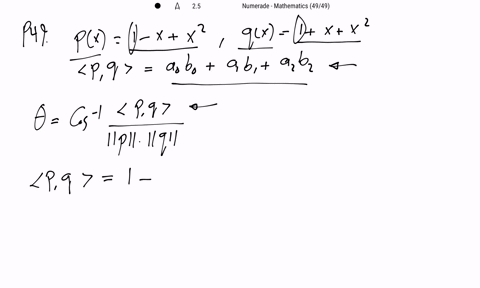 2.5
Numerade - Mathematics (49/49)
P49. p(x) = 1 - x + x², q(x) = 1 + x + x²
<P,q> = a₀b₀ + a b₁ + a₂b₂ ←
θ = Cos⁻¹ <P,q> / ||p||·||q|| ←
<P,q> = 1 -